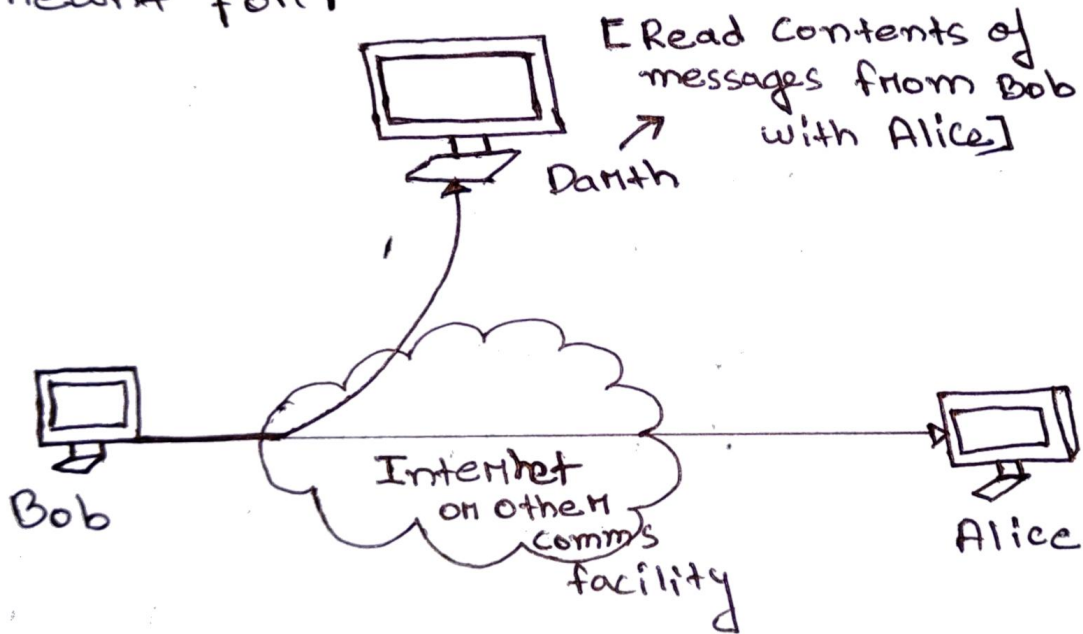 [Read Contents of
messages from Bob
with Alice]
Darth
Bob
Internet
or other
comms
facility
Alice